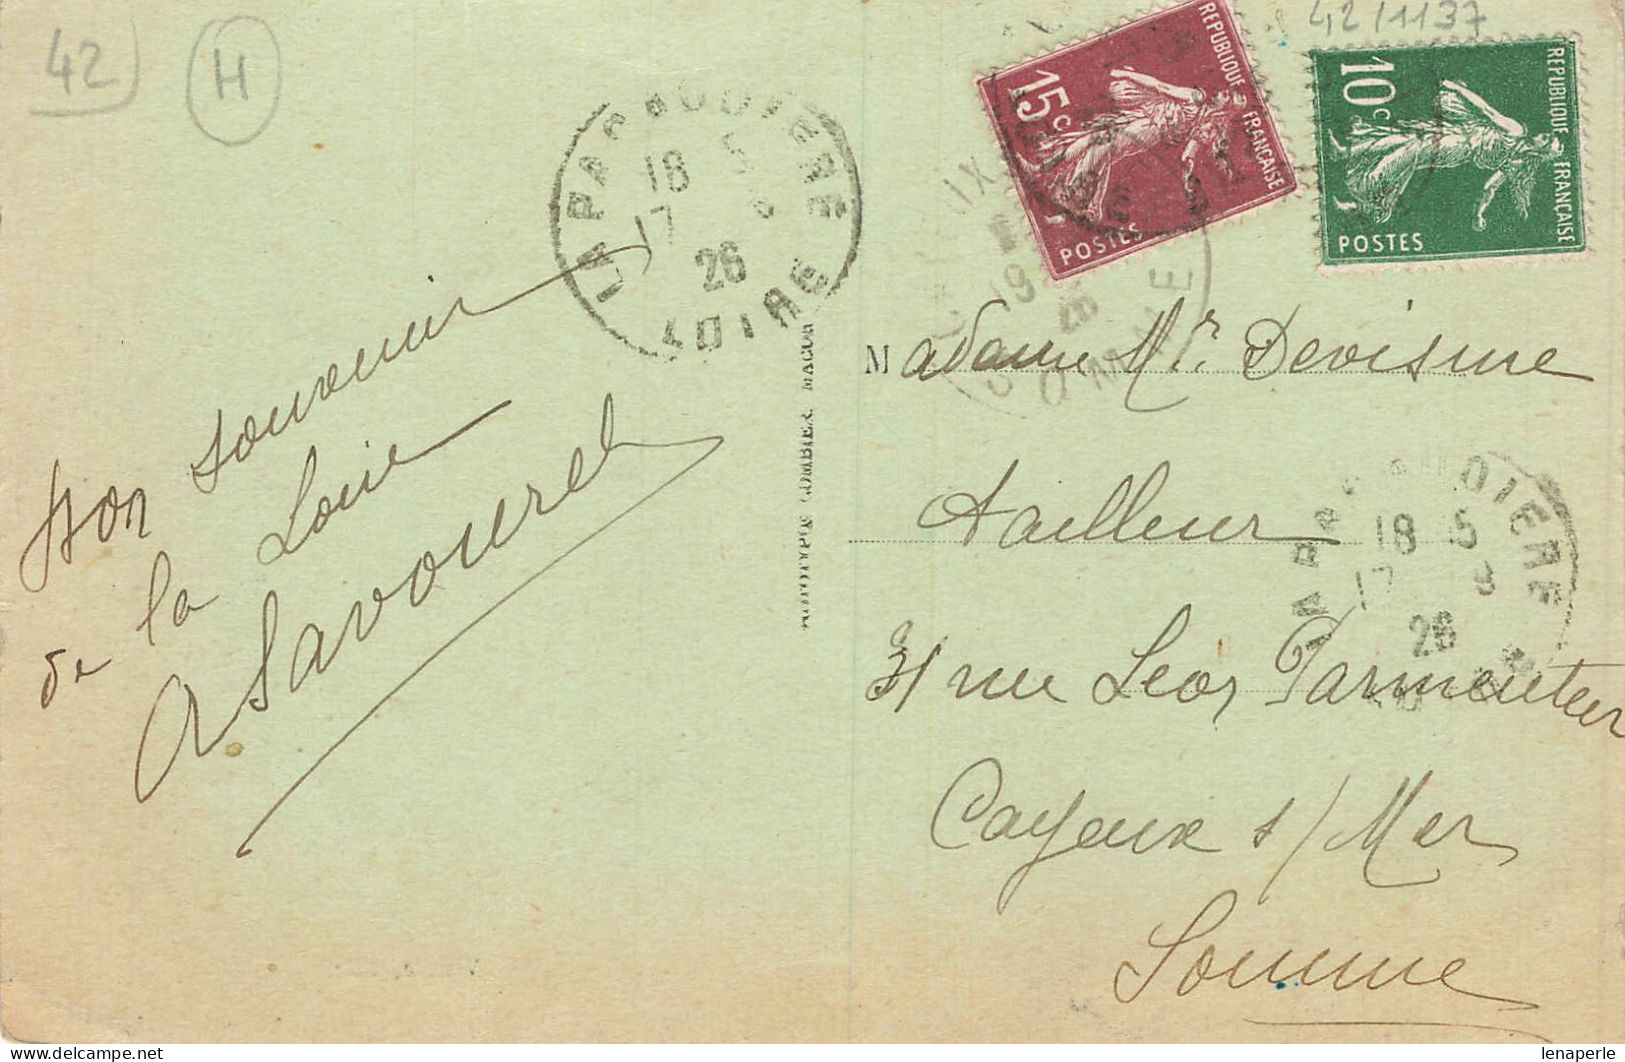 42
H
42/1137
REPUBLIQUE FRANÇAISE
15c
POSTES
REPUBLIQUE FRANÇAISE
10c
POSTES
LA PACAUDIERE
18 5
17 8
26
LOIRE
19
26
SOMME
Bon souvenir
de la Loire
A Savouret
COMBIER MACON
Madame Mr. Devisme
Tailleur
LA PACAUDIERE
18 15
17 8
26
31 rue Leon Parmentier
Cayeux s/ Mer
Somme
lenaperle